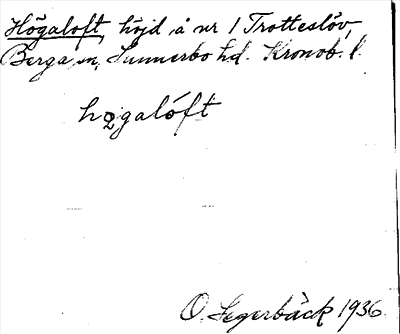 Högaloft, höjd å nr 1 Trotteslöv,
Berga sn, Sunnerbo hd. Kronob. l.
hǫgalóft
O. Segerbäck 1936